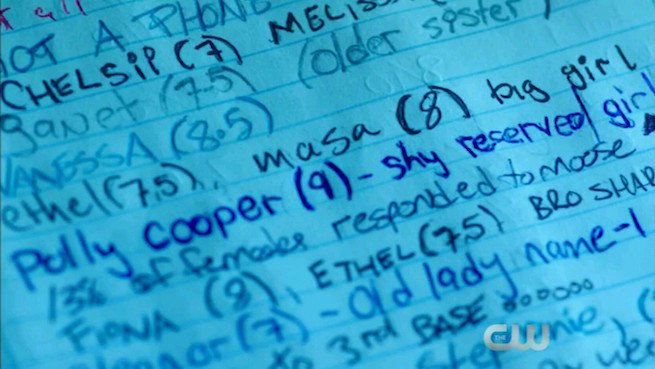 NOT A PHONE
CHELSIP (7) MELISS
Ganet (7.5) (older sister)
VANESSA (8.5)
ethel (7.5), masa (8) big girl
Polly Cooper (9) - shy reserved girl
13% of females responded to moose
FIONA (8), ETHEL (7.5) BRO SHAR
(7) - old lady name - 1
to 3rd BASE oooooo
THE CW